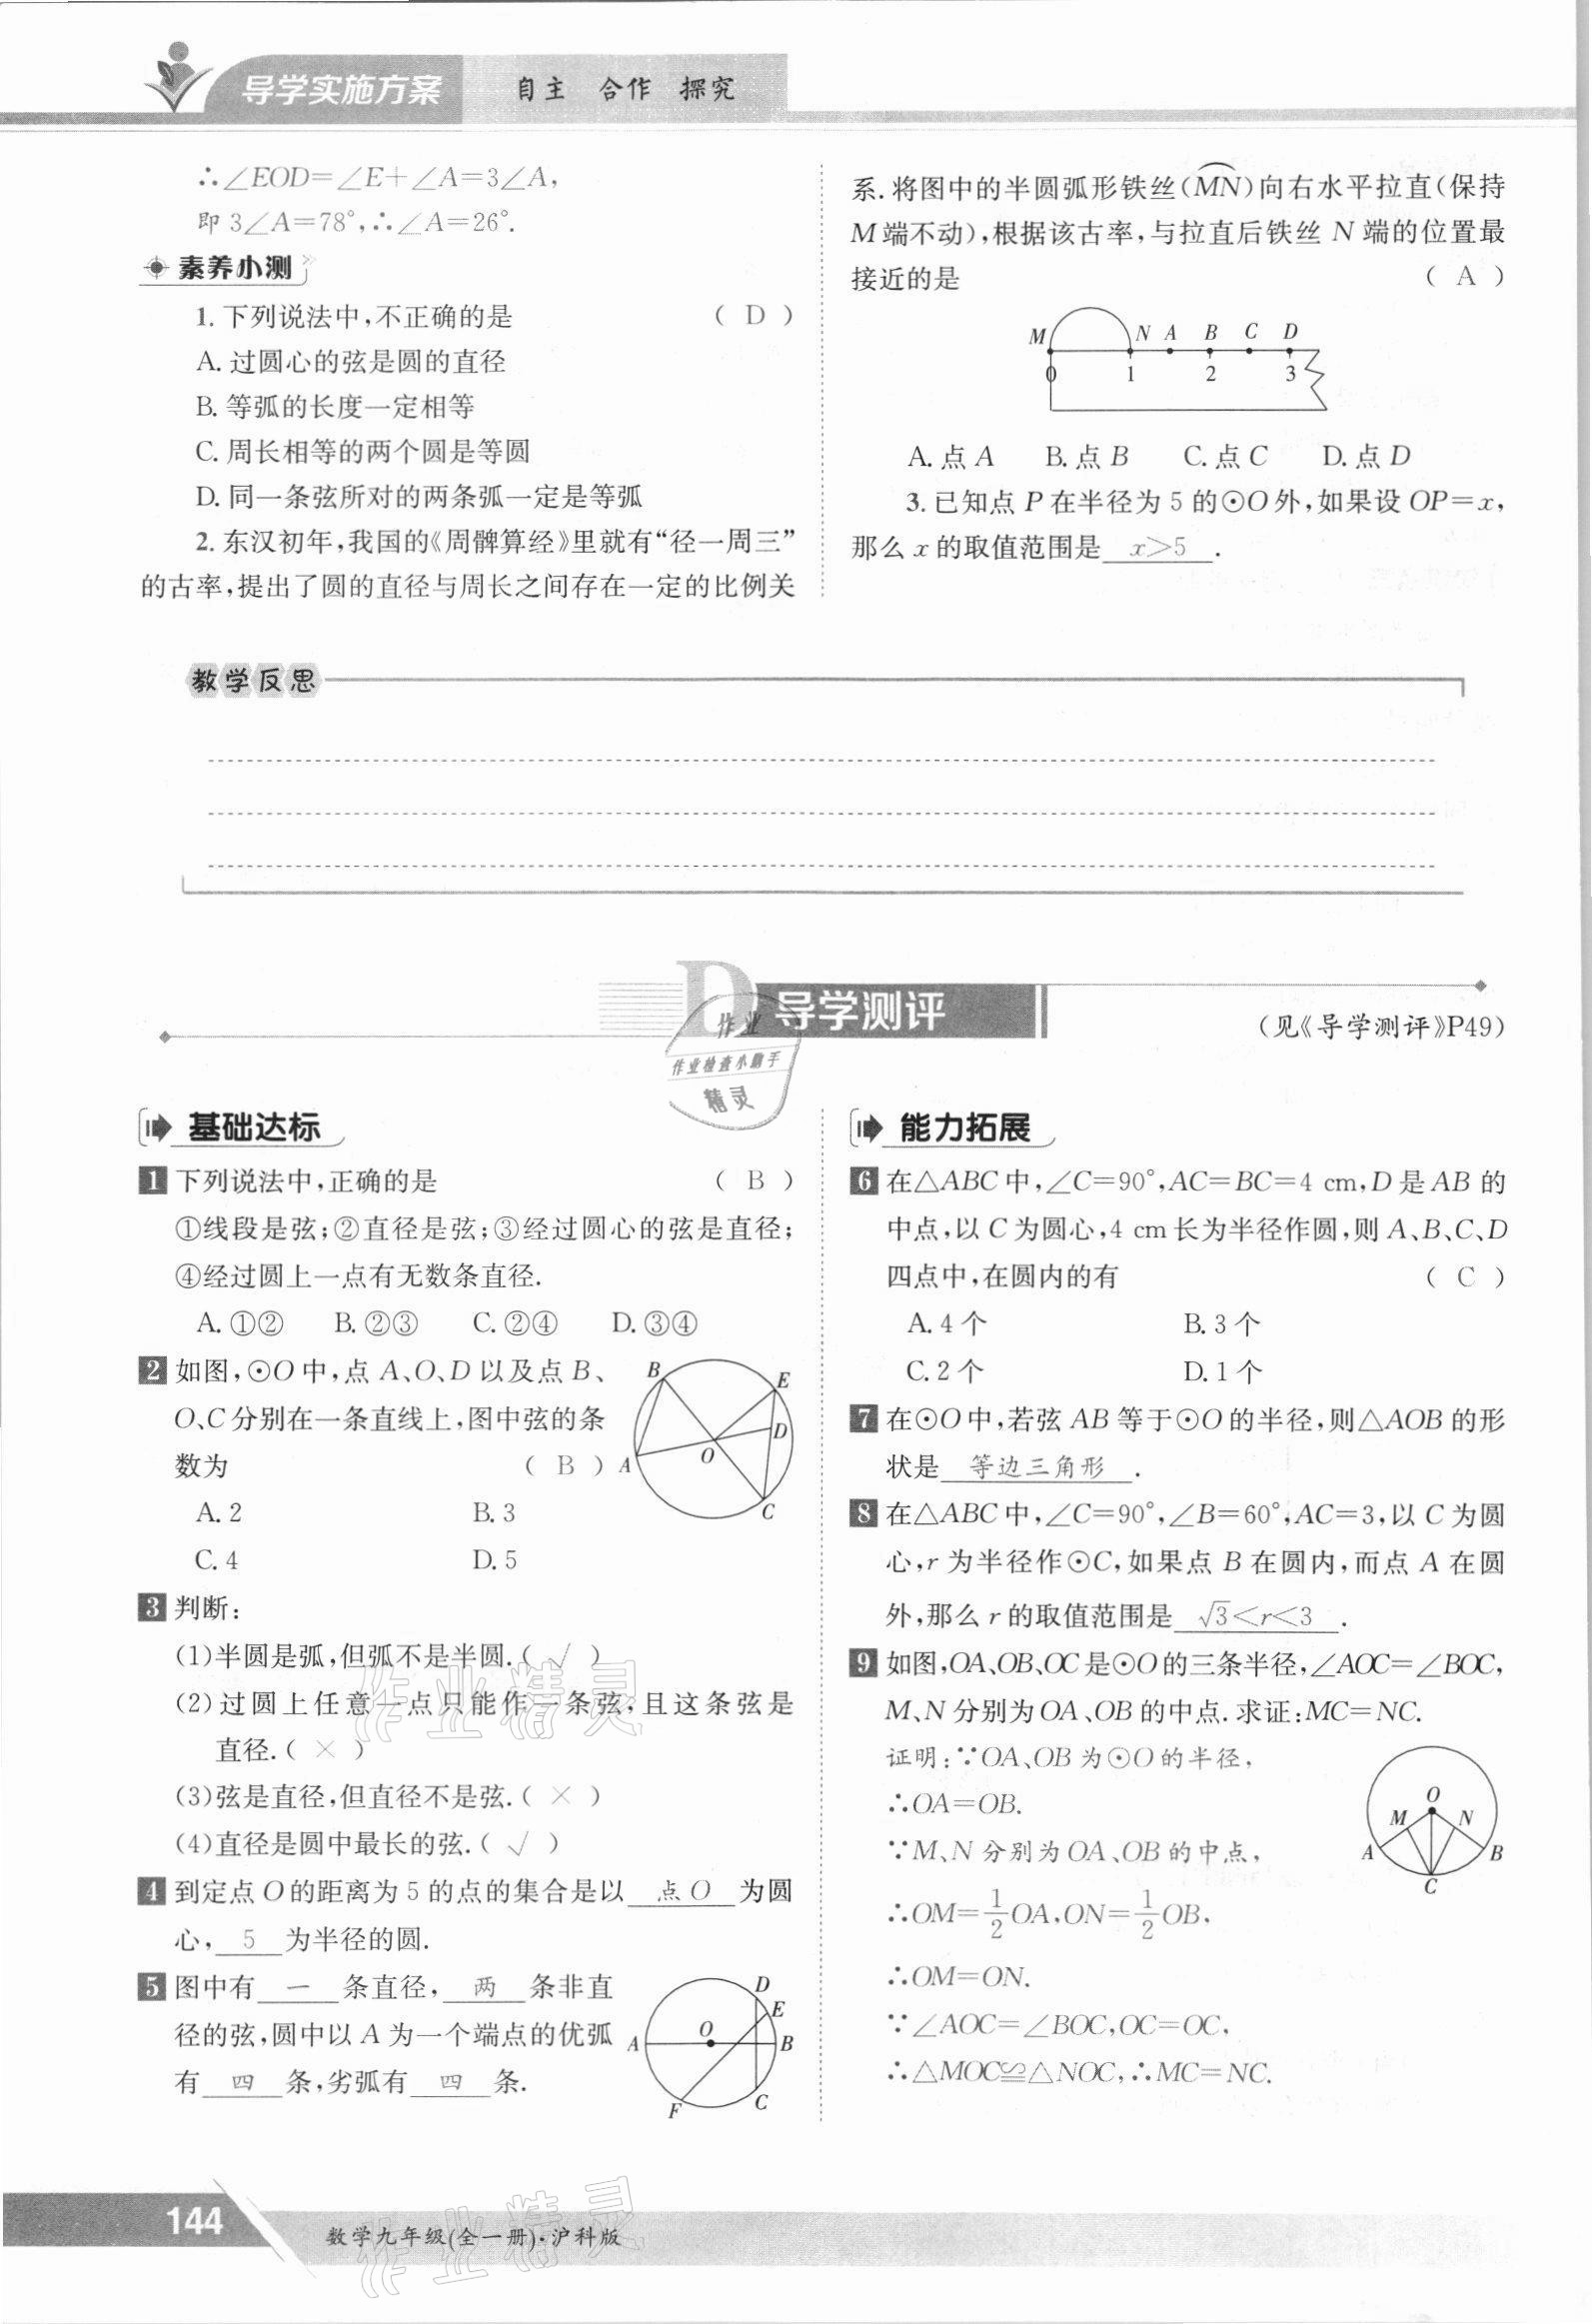 导学实施方案 自主 合作 探究
∴∠EOD=∠E+∠A=3∠A,
即 3∠A=78°,∴∠A=26°.
素养小测
1. 下列说法中,不正确的是 ( D )
A. 过圆心的弦是圆的直径
B. 等弧的长度一定相等
C. 周长相等的两个圆是等圆
D. 同一条弦所对的两条弧一定是等弧
2. 东汉初年,我国的《周髀算经》里就有“径一周三”
的古率,提出了圆的直径与周长之间存在一定的比例关
系. 将图中的半圆弧形铁丝(MN)向右水平拉直(保持
M端不动),根据该古率,与拉直后铁丝 N 端的位置最
接近的是 ( A )
M N A B C D
0 1 2 3
A. 点 A B. 点 B C. 点 C D. 点 D
3. 已知点 P 在半径为 5 的⊙O外,如果设 OP=x,
那么 x 的取值范围是 x>5 .
教学反思
D 导学测评
(见《导学测评》P49)
作业
作业检查小助手
精灵
基础达标
1 下列说法中,正确的是 ( B )
①线段是弦;②直径是弦;③经过圆心的弦是直径;
④经过圆上一点有无数条直径.
A. ①② B. ②③ C. ②④ D. ③④
2 如图,⊙O 中,点 A、O、D 以及点 B、
O、C 分别在一条直线上,图中弦的条
数为 ( B )
A. 2 B. 3
C. 4 D. 5
B E D O A C
3 判断:
(1)半圆是弧,但弧不是半圆.( √ )
(2)过圆上任意一点只能作一条弦,且这条弦是
直径.( × )
(3)弦是直径,但直径不是弦.( × )
(4)直径是圆中最长的弦.( √ )
4 到定点 O 的距离为 5 的点的集合是以 点 O 为圆
心, 5 为半径的圆.
5 图中有 一 条直径, 两 条非直
径的弦,圆中以 A 为一个端点的优弧
有 四 条,劣弧有 四 条.
D E A O B F C
能力拓展
6 在△ABC 中,∠C=90°,AC=BC=4 cm,D 是 AB 的
中点,以 C 为圆心,4 cm 长为半径作圆,则 A、B、C、D
四点中,在圆内的有 ( C )
A. 4 个 B. 3 个
C. 2 个 D. 1 个
7 在⊙O 中,若弦 AB 等于⊙O 的半径,则△AOB 的形
状是 等边三角形 .
8 在△ABC 中,∠C=90°,∠B=60°,AC=3,以 C 为圆
心,r 为半径作⊙C,如果点 B 在圆内,而点 A 在圆
外,那么 r 的取值范围是 √3<r<3 .
9 如图,OA、OB、OC 是⊙O 的三条半径,∠AOC=∠BOC,
M、N 分别为 OA、OB 的中点. 求证:MC=NC.
证明:∵OA、OB 为⊙O 的半径,
∴OA=OB.
∵M、N 分别为 OA、OB 的中点,
∴OM=1/2 OA,ON=1/2 OB,
∴OM=ON.
∵∠AOC=∠BOC,OC=OC,
∴△MOC≌△NOC,∴MC=NC.
O M N A B C
作业精灵
144
数学九年级(全一册)·沪科版
作业精灵